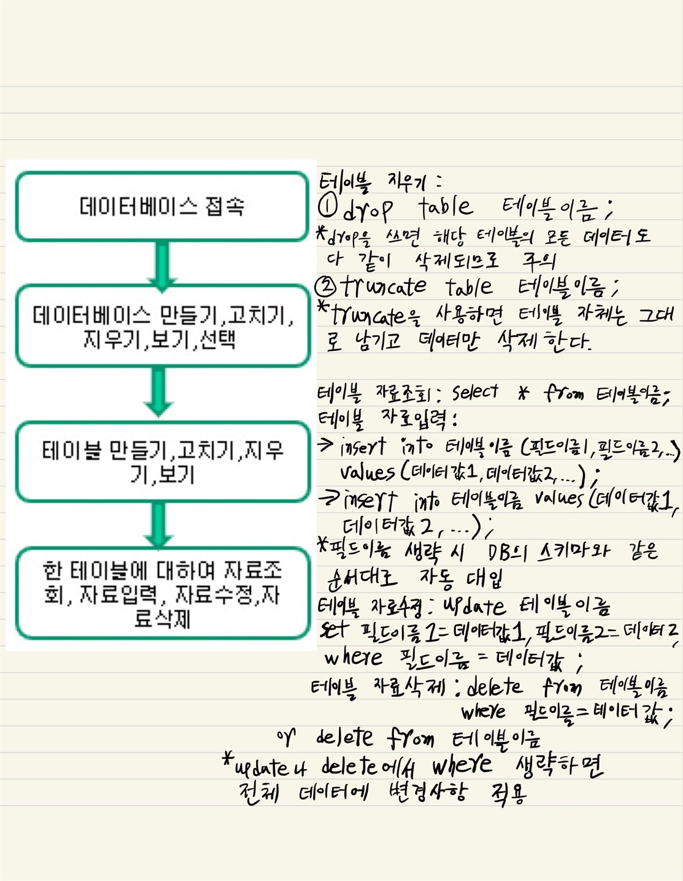 데이터베이스 접속
데이터베이스 만들기,고치기,
지우기,보기,선택
테이블 만들기,고치기,지우
기,보기
한 테이블에 대하여 자료조
회, 자료입력, 자료수정,자
료삭제
테이블 지우기 :
① drop table 테이블이름 ;
*drop을 쓰면 해당 테이블의 모든 데이터도
다 같이 삭제되므로 주의
② truncate table 테이블이름 ;
*truncate을 사용하면 테이블 자체는 그대
로 남기고 데이터만 삭제한다.
테이블 자료조회 : select * from 테이블이름;
테이블 자료입력 :
→ insert into 테이블이름 (필드이름1, 필드이름2,..)
values (데이터값1, 데이터값2, ...) ;
→ insert into 테이블이름 values (데이터값1,
데이터값2, ...) ;
*필드이름 생략 시 DB의 스키마와 같은
순서대로 자동 대입
테이블 자료수정 : update 테이블이름
set 필드이름1=데이터값1, 필드이름2=데이터2,
where 필드이름 = 데이터값 ;
테이블 자료삭제 : delete from 테이블이름
where 필드이름=데이터값 ;
or delete from 테이블이름
*update나 delete에서 where 생략하면
전체 데이터에 변경사항 적용